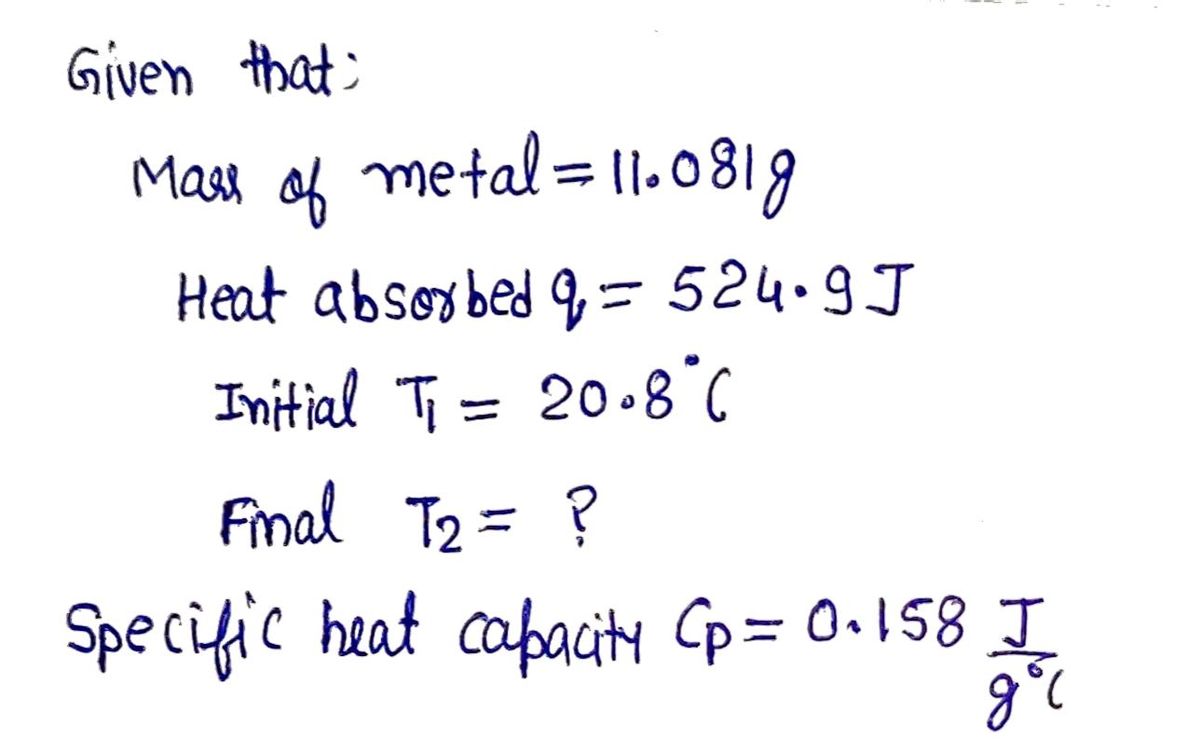 Given that:
Mass of metal = 11.081g
Heat absorbed q = 524.9 J
Initial T1 = 20.8°C
Final T2 = ?
Specific heat capacity Cp = 0.158 J
g°C